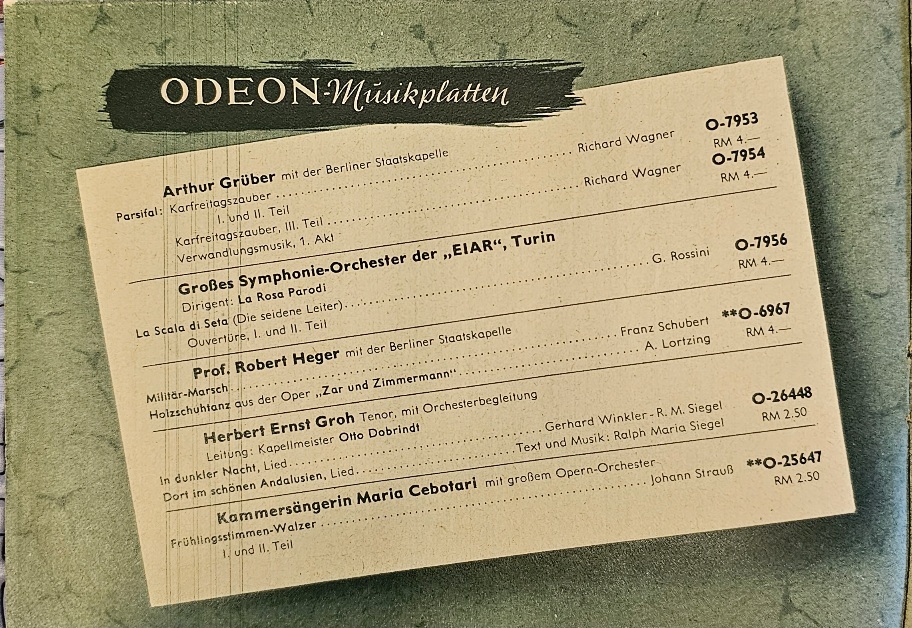 ODEON-Musikplatten
Arthur Grüber mit der Berliner Staatskapelle O-7953
Parsifal: Karfreitagszauber ........ Richard Wagner RM 4.—
I. und II. Teil O-7954
Karfreitagszauber, III. Teil ........ Richard Wagner RM 4.—
Verwandlungsmusik, 1. Akt
Großes Symphonie-Orchester der „EIAR“, Turin
Dirigent: La Rosa Parodi O-7956
La Scala di Seta (Die seidene Leiter) ........ G. Rossini RM 4.—
Ouvertüre, I. und II. Teil
Prof. Robert Heger mit der Berliner Staatskapelle **O-6967
Militär-Marsch ........ Franz Schubert RM 4.—
Holzschuhtanz aus der Oper „Zar und Zimmermann“ ........ A. Lortzing
Herbert Ernst Groh Tenor, mit Orchesterbegleitung
Leitung: Kapellmeister Otto Dobrindt O-26448
In dunkler Nacht, Lied ........ Gerhard Winkler - R. M. Siegel RM 2.50
Dort im schönen Andalusien, Lied ........ Text und Musik: Ralph Maria Siegel
Kammersängerin Maria Cebotari mit großem Opern-Orchester **O-25647
Frühlingsstimmen-Walzer ........ Johann Strauß RM 2.50
I. und II. Teil